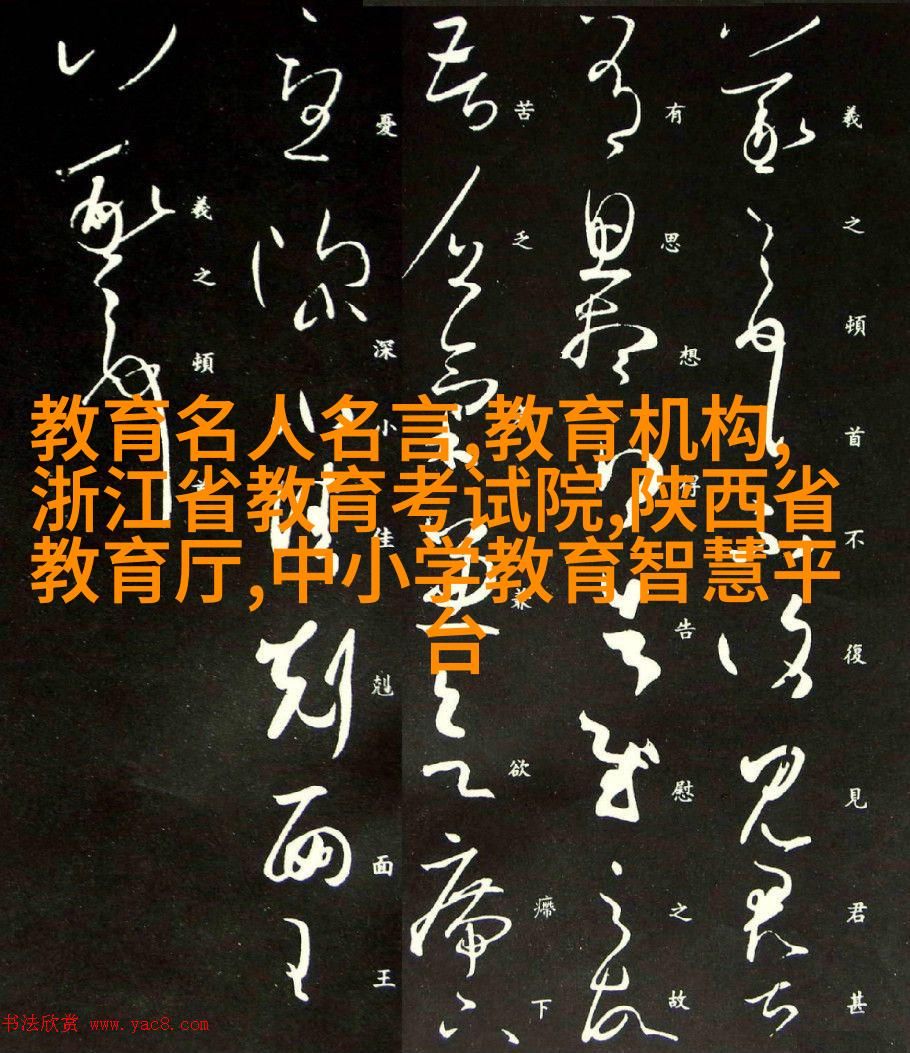 教育名人名言,教育机构,
浙江省教育考试院,陕西省
教育厅,中小学教育智慧平
台
羲之頓首不復見君甚
有思想得告慰之故
苦乏兼欲㿃下
憂深小佳剋面王
羲之頓首
书法欣赏 www.yac8.com